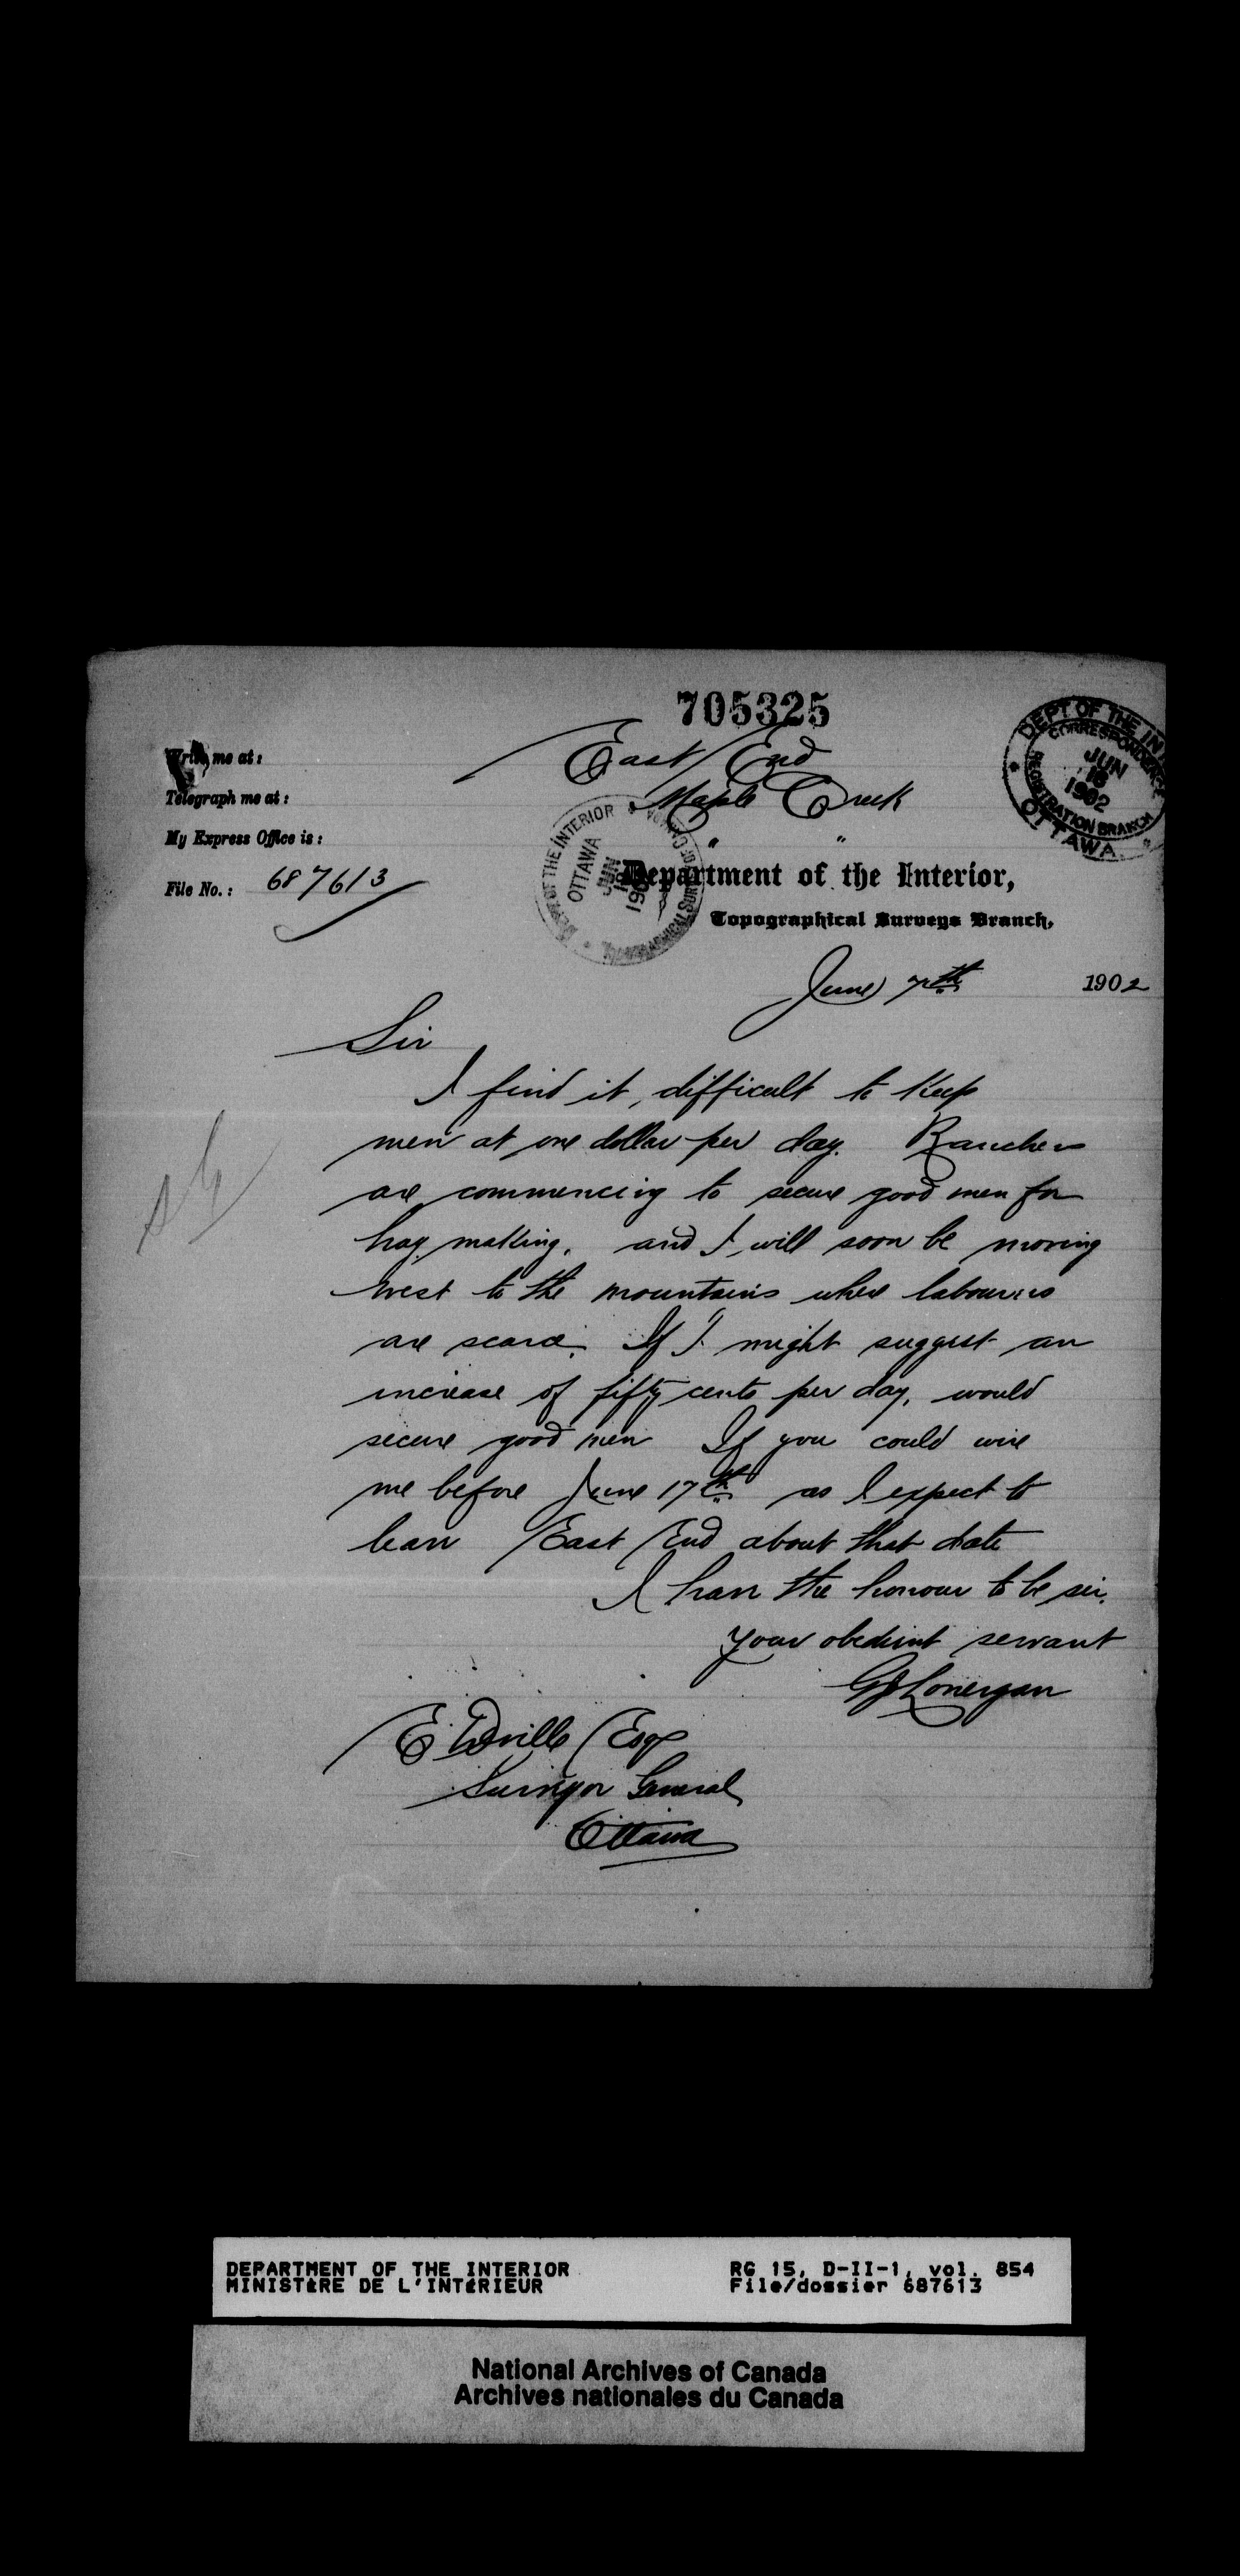 705325
DEPT OF THE IN
CORRESPONDENCE
JUN
16
1902
REGISTRATION BRANCH
OTTAWA
Write me at: East End
Telegraph me at: Maple Creek
My Express Office is: " "
File No.: 687613
OF THE INTERIOR
OTTAWA
JUN
Department of the Interior,
Topographical Surveys Branch,
June 7th 1902
Sir
I find it, difficult to keep
men at one dollar per day. Ranchers
are commencing to secure good men for
hay making, and I will soon be moving
west to the mountains where labourers
are scarce. If I might suggest an
increase of fifty cents per day, would
secure good men If you could wire
me before June 17th as I expect to
leave East End about that date
I have the honour to be sir,
your obedient servant
GJ Lonergan
E Deville Esq
Surveyor General
Ottawa
DEPARTMENT OF THE INTERIOR RG 15, D-II-1, vol. 854
MINISTÈRE DE L'INTÉRIEUR File/dossier 687613
National Archives of Canada
Archives nationales du Canada